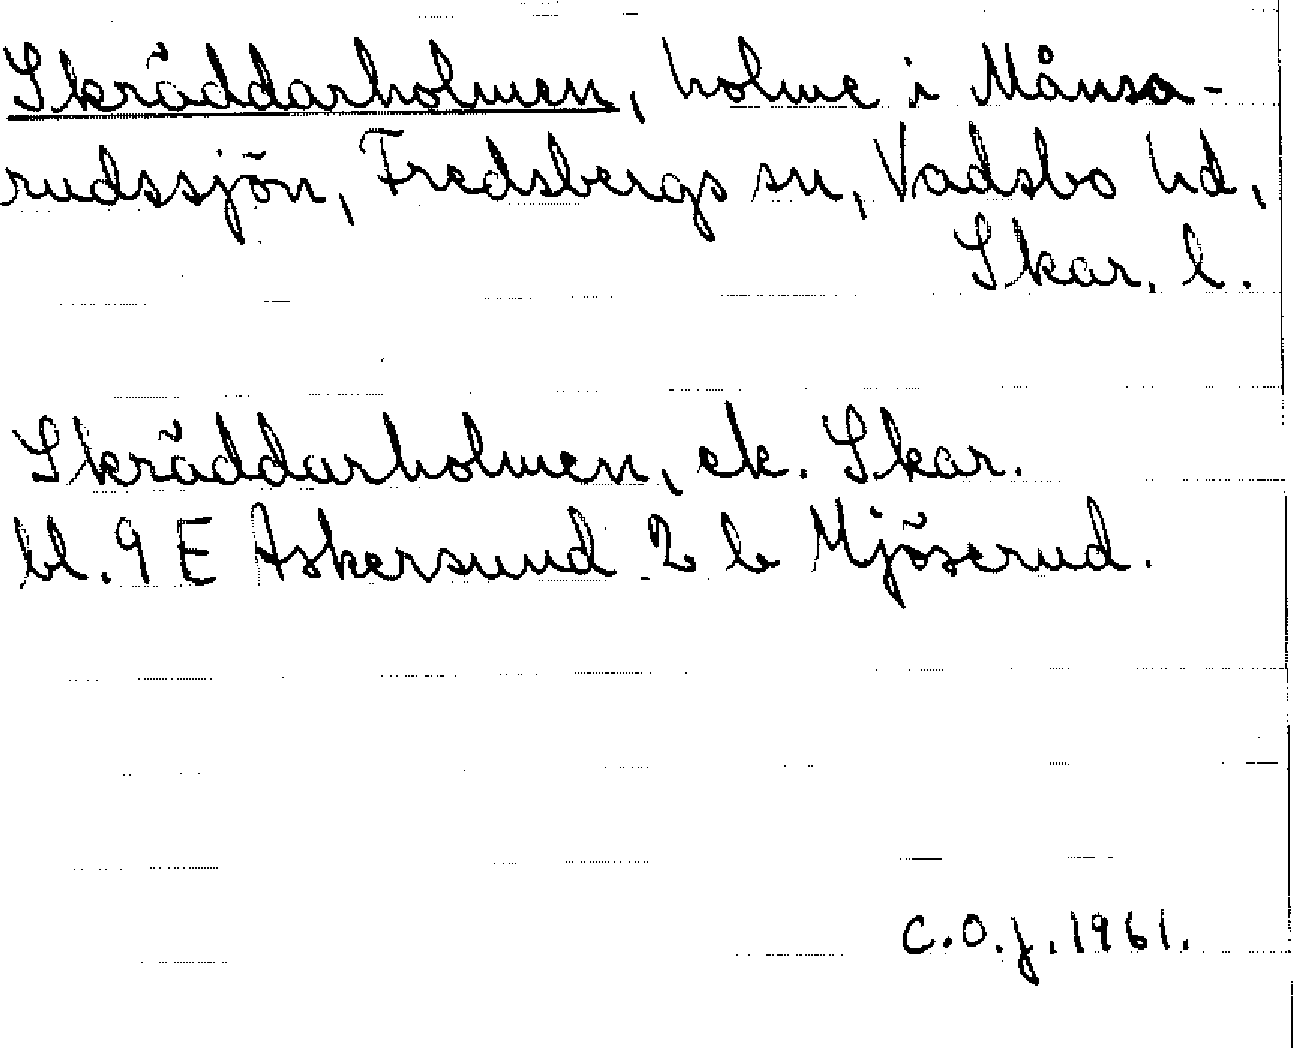 Skräddarholmen, holme i Månsa-
rudssjön, Fredsbergs sn, Vadsbo hd,
Skar. l.
Skräddarholmen, ek. Skar.
bl. 9 E Askersund 2 b Mjöserud.
C.O.J. 1961.